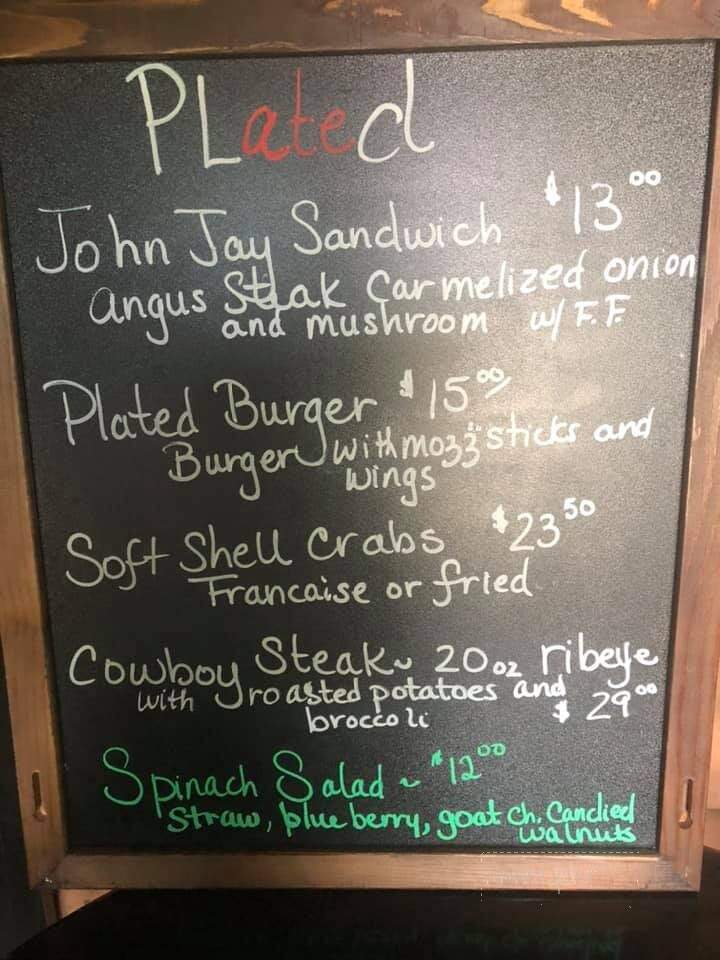 PLated
John Jay Sandwich $13.00
angus Steak Carmelized onion
and mushroom w/ F.F.
Plated Burger $15.00
Burger with mozz sticks and
wings
Soft Shell Crabs $23.50
Francaise or fried
Cowboy Steak ~ 20oz ribeye
with roasted potatoes and $29.00
broccoli
Spinach Salad ~ $12.00
Straw, blue berry, goat ch. Candied
walnuts